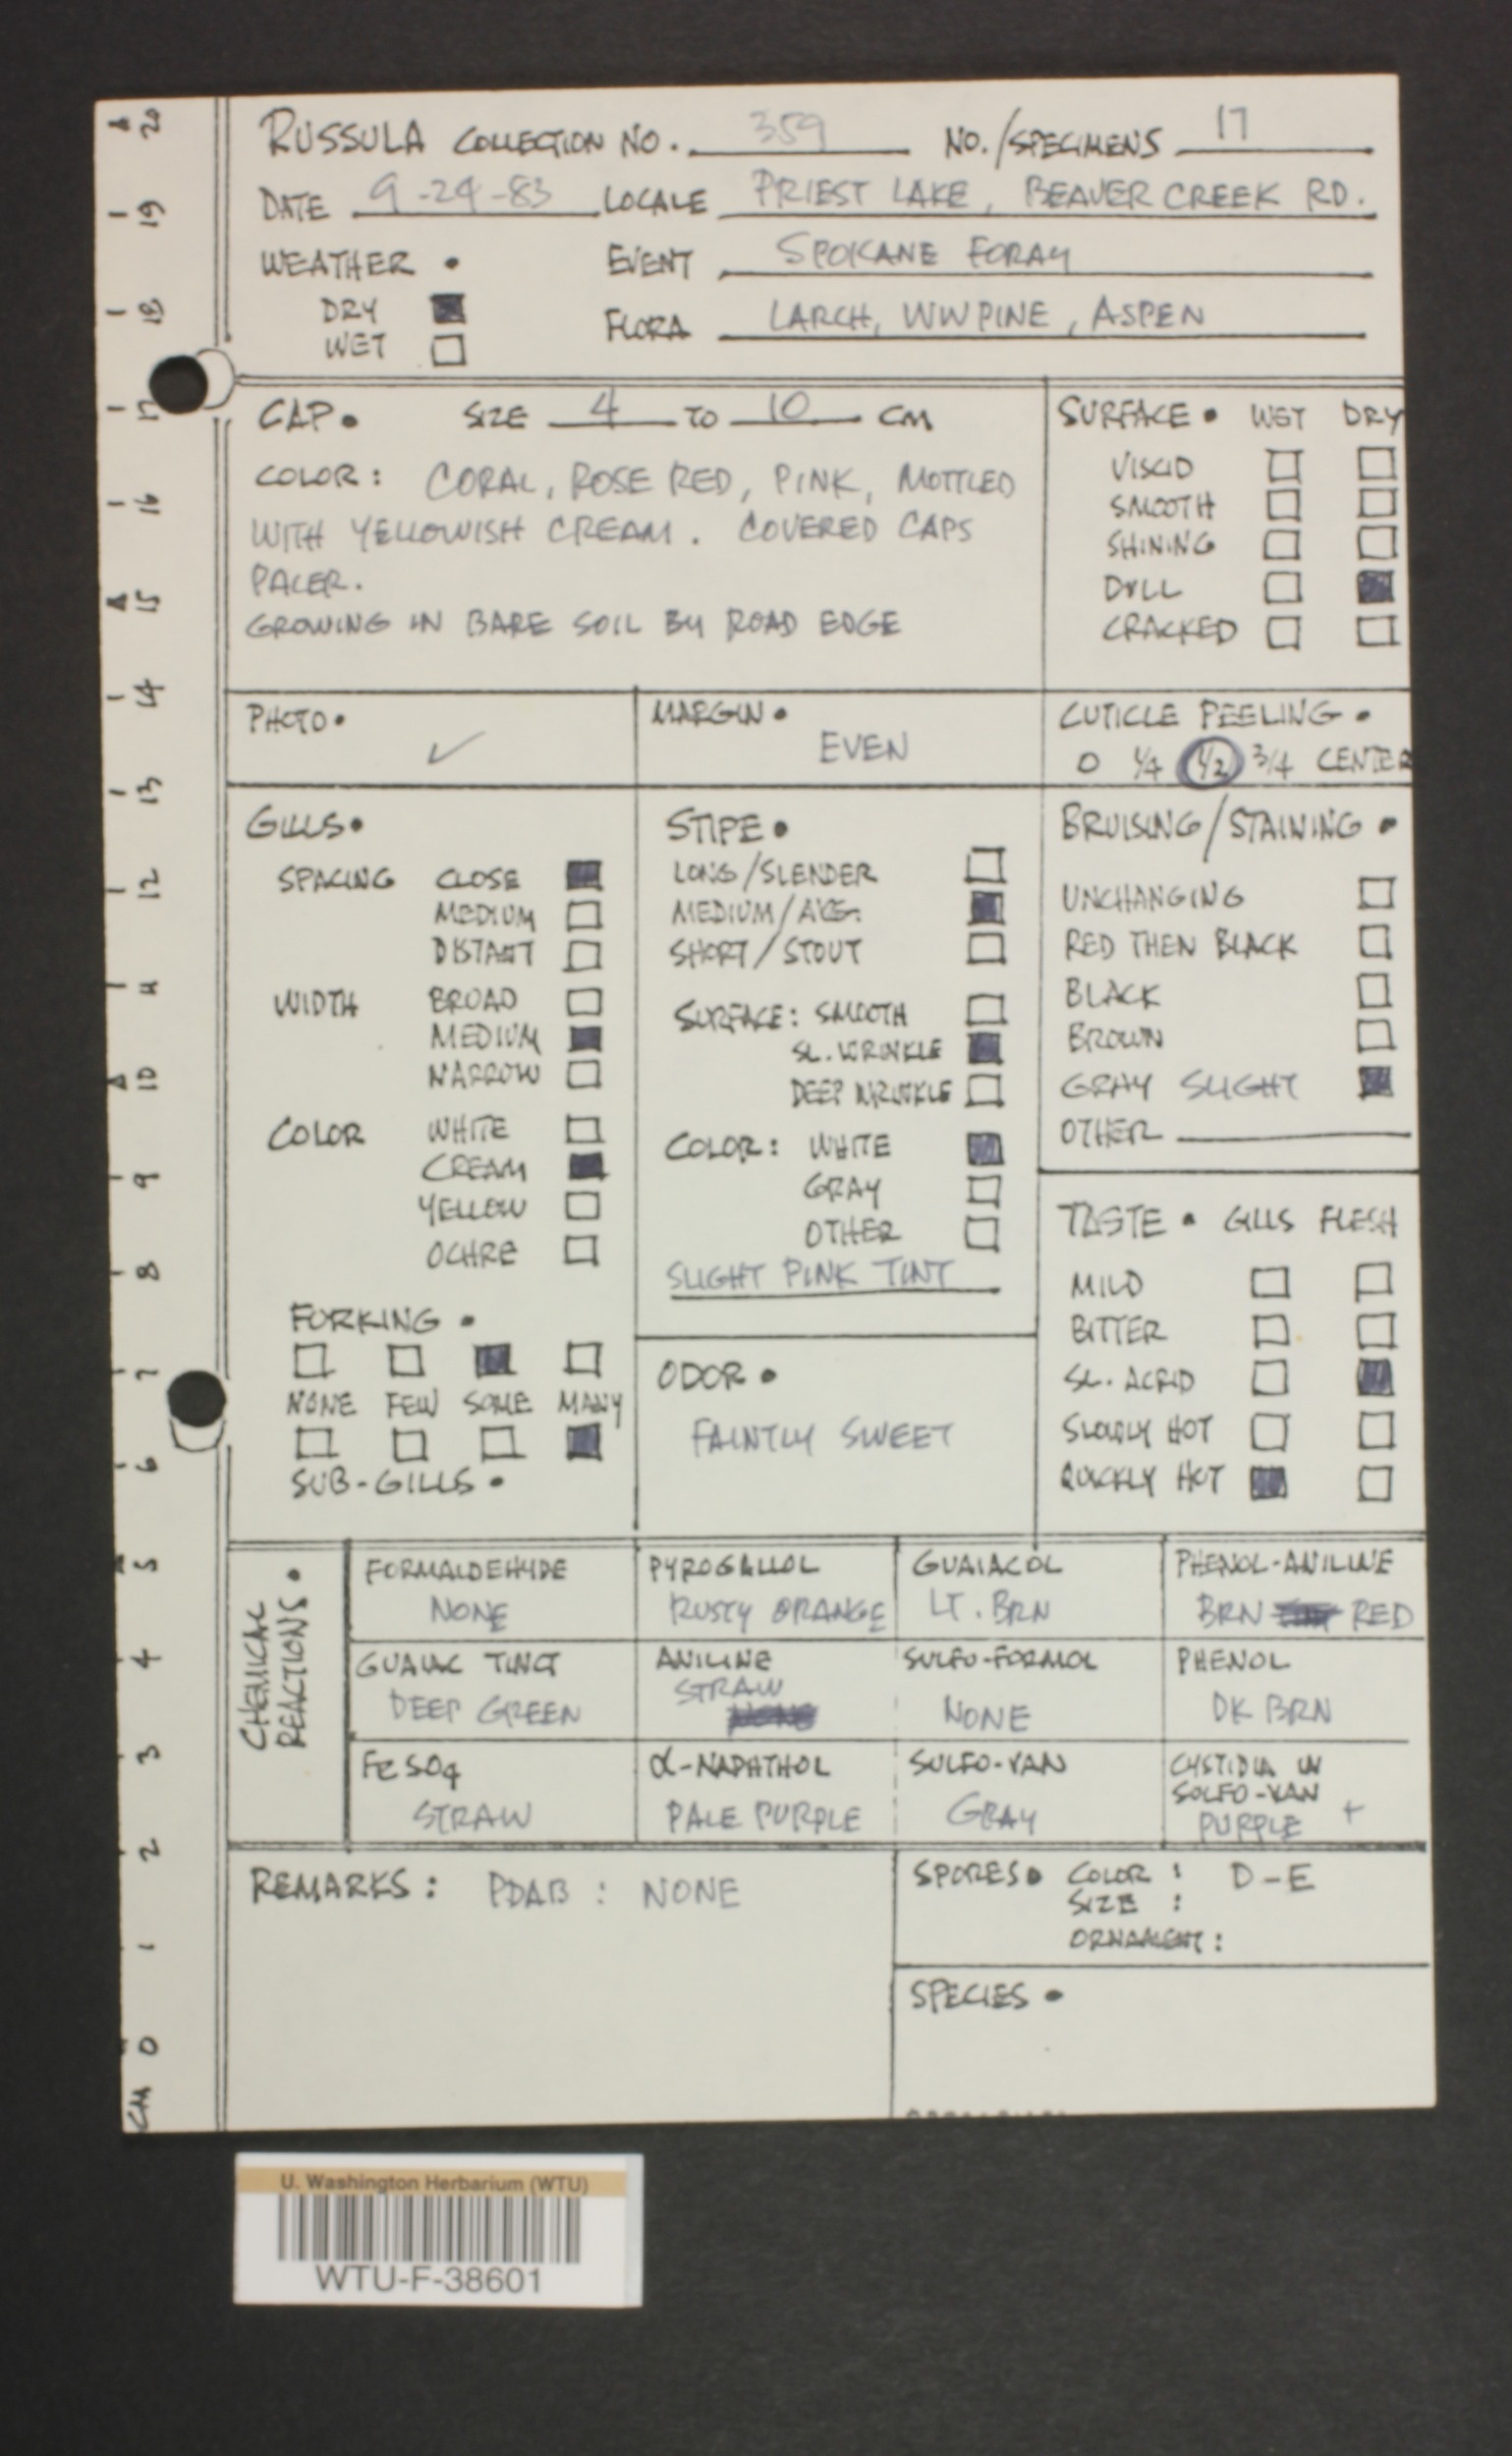 RUSSULA COLLECTION NO. 359 NO./SPECIMENS 17
DATE 9-24-83 LOCALE PRIEST LAKE, BEAVER CREEK RD.
WEATHER • EVENT SPOKANE FORAY
DRY ■
WET □ FLORA LARCH, WW PINE, ASPEN
CAP • SIZE 4 TO 10 CM
COLOR: CORAL, ROSE RED, PINK, MOTTLED
WITH YELLOWISH CREAM. COVERED CAPS
PALER.
GROWING IN BARE SOIL BY ROAD EDGE
SURFACE • WET DRY
VISCID □ □
SMOOTH □ □
SHINING □ □
DULL □ ■
CRACKED □ □
PHOTO • ✓
MARGIN •
EVEN
CUTICLE PEELING •
0 1/4 1/2 3/4 CENTER
GILLS •
SPACING CLOSE ■
MEDIUM □
DISTANT □
WIDTH BROAD □
MEDIUM ■
NARROW □
COLOR WHITE □
CREAM ■
YELLOW □
OCHRE □
FORKING •
□ □ ■ □
NONE FEW SOME MANY
□ □ □ ■
SUB-GILLS •
STIPE •
LONG/SLENDER □
MEDIUM/AVG. ■
SHORT/STOUT □
SURFACE: SMOOTH □
SL. WRINKLE ■
DEEP WRINKLE □
COLOR: WHITE ■
GRAY □
OTHER □
SLIGHT PINK TINT
ODOR •
FAINTLY SWEET
BRUISING/STAINING •
UNCHANGING □
RED THEN BLACK □
BLACK □
BROWN □
GRAY SLIGHT ■
OTHER
TASTE • GILLS FLESH
MILD □ □
BITTER □ □
SL. ACRID □ ■
SLOWLY HOT □ □
QUICKLY HOT ■ □
CHEMICAL
REACTIONS •
FORMALDEHYDE
NONE
PYROGALLOL
RUSTY ORANGE
GUAIACOL
LT. BRN
PHENOL-ANILINE
BRN RED
GUAIAC TINCT
DEEP GREEN
ANILINE
STRAW
NONE
SULFO-FORMOL
NONE
PHENOL
DK BRN
FeSO4
STRAW
α-NAPHTHOL
PALE PURPLE
SULFO-VAN
GRAY
CYSTIDIA IN
SULFO-VAN
PURPLE +
REMARKS: PDAB: NONE
SPORES • COLOR: D-E
SIZE:
ORNAMENT:
SPECIES •
CM 0 1 2 3 4 5 6 7 8 9 10 11 12 13 14 15 16 17 18 19 20
U. Washington Herbarium (WTU)
WTU-F-38601